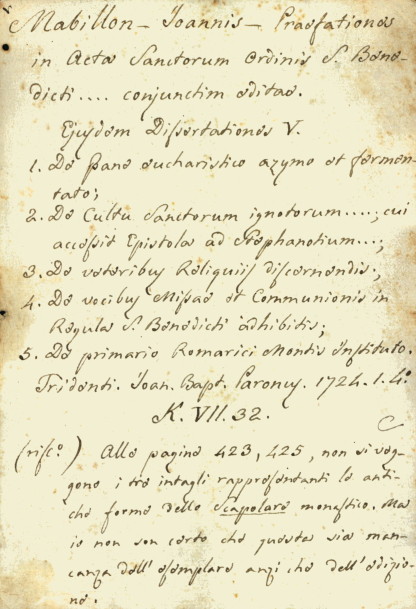 Mabillon - Joannis - Praefationes
in Acta Sanctorum Ordinis S. Bene-
dicti .... conjunctim editae.
Ejusdem Dissertationes V.
1. De pane eucharistico azymo et fermen-
tato;
2. De Cultu Sanctorum ignotorum ....; cui
accessit Epistola ad Stephanotium ...;
3. De veteribus Reliquiis discernendis;
4. De vocibus Missae et Communionis in
Regula S. Benedicti adhibitis;
5. De primario Romarici Montis Instituto.
Tridenti. Joan. Bapt. Paronus. 1724. 1. 4.º
K. VII. 32.
C
(risc.º) Alle pagine 423, 425, non si veg-
gono i tre intagli rappresentanti le anti-
che forme dello Scapolare monastico. Ma
io non son certo che questa sia man-
canza dell'esemplare anzi che dell'edizio-
ne.